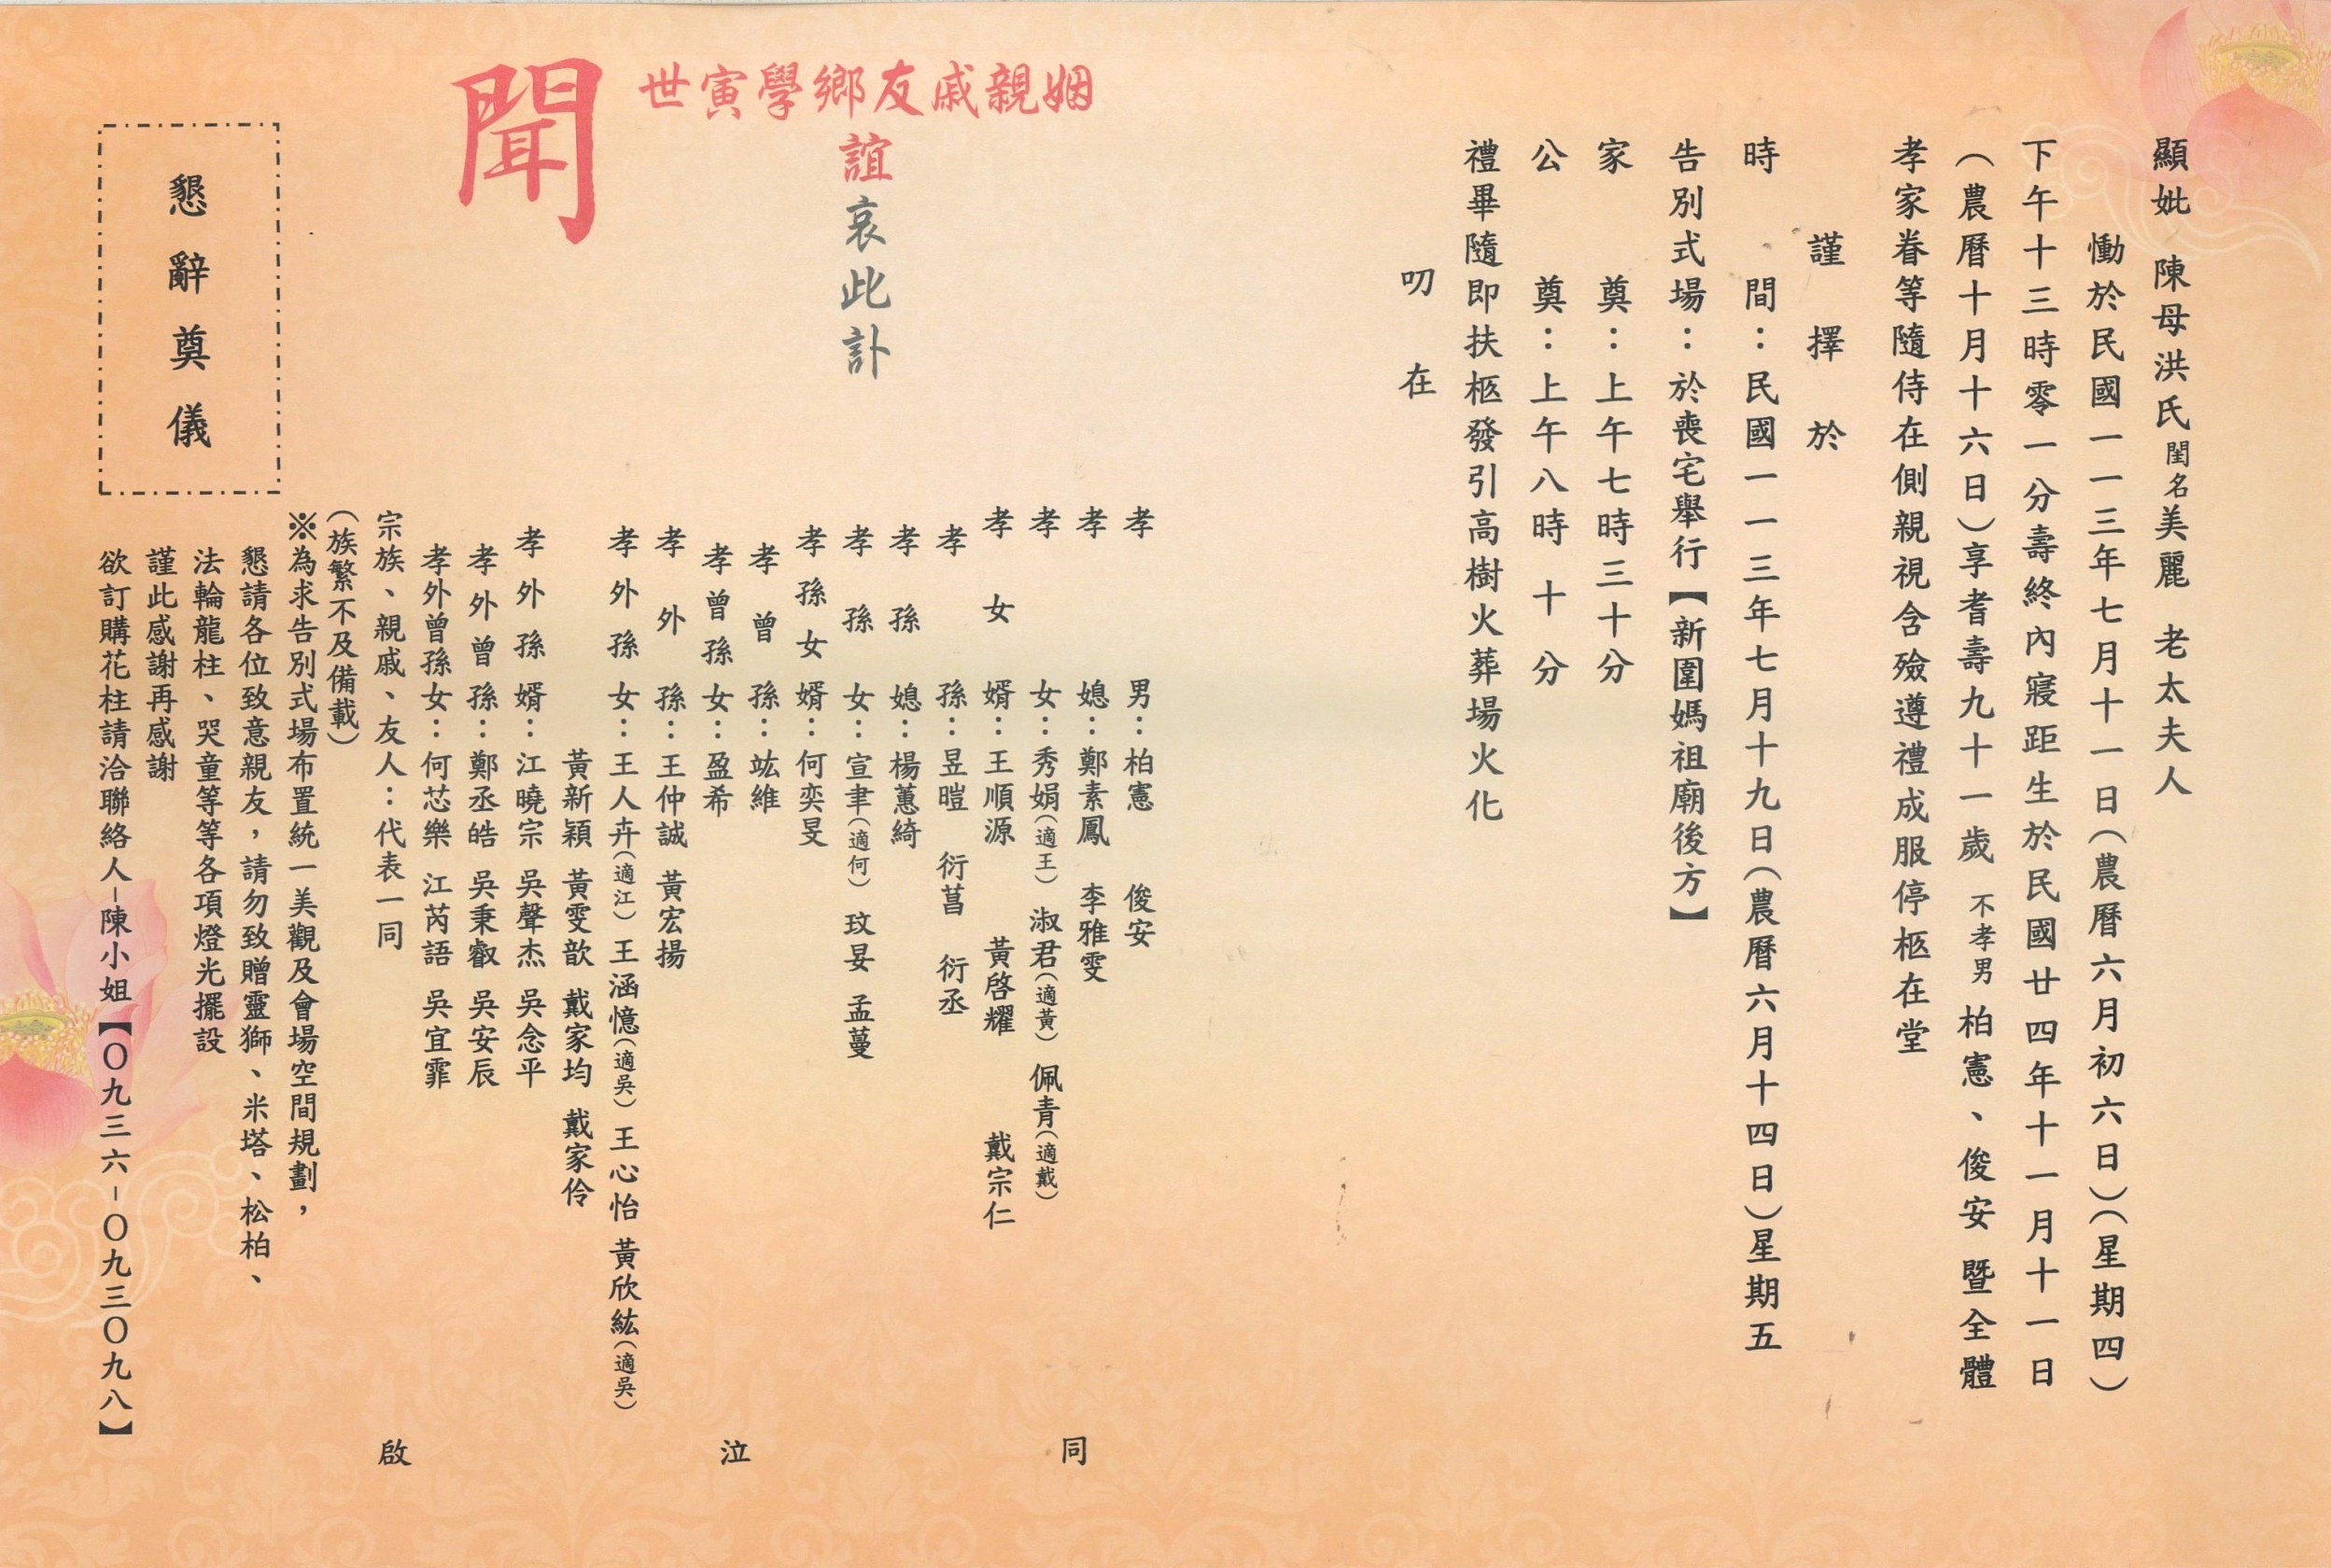 顯妣 陳母洪氏閨名美麗 老太夫人
慟於民國一一三年七月十一日(農曆六月初六日)(星期四)
下午十三時零一分壽終內寢距生於民國廿四年十一月十一日
(農曆十月十六日)享耆壽九十一歲 不孝男 柏憲、俊安 暨全體
孝家眷等隨侍在側親視含殮遵禮成服停柩在堂
謹擇於
時間:民國一一三年七月十九日(農曆六月十四日)星期五
告別式場:於喪宅舉行【新圍媽祖廟後方】
家奠:上午七時三十分
公奠:上午八時十分
禮畢隨即扶柩發引高樹火葬場火化
叨在
姻親戚友鄉學寅世
誼哀此訃
聞
孝男:柏憲 俊安
孝媳:鄭素鳳 李雅雯
孝女:秀娟(適王) 淑君(適黃) 佩青(適戴)
孝女婿:王順源 黃啓耀 戴宗仁
孝孫:昱暟 衍菖 衍丞
孝孫媳:楊蕙綺
孝孫女:宣聿(適何) 玟妟 孟蔓
孝孫女婿:何奕旻
孝曾孫:竑維
孝曾孫女:盈希
孝外孫:王仲誠 黃宏揚
孝外孫女:王人卉(適江) 王涵憶(適吳) 王心怡 黃欣紘(適吳)
黃新穎 黃雯歆 戴家均 戴家伶
孝外孫婿:江曉宗 吳聲杰 吳念平
孝外曾孫:鄭丞皓 吳秉叡 吳安辰
孝外曾孫女:何芯樂 江芮語 吳宜霏
宗族、親戚、友人:代表一同
(族繁不及備載)
同泣啟
※為求告別式場布置統一美觀及會場空間規劃,
懇請各位致意親友,請勿致贈靈獅、米塔、松柏、
法輪龍柱、哭童等等各項燈光擺設
謹此感謝再感謝
欲訂購花柱請洽聯絡人–陳小姐【〇九三六–〇九三〇九八】
懇辭奠儀